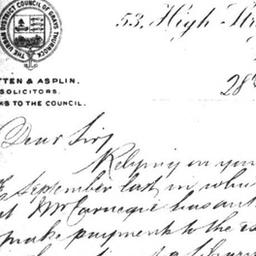 THE URBAN DISTRICT COUNCIL OF GRAYS THURROCK
53, High
28
TTEN & ASPLIN.
SOLICITORS.
KS TO THE COUNCIL.
Dear Sir,
Relying on your
September last, in
Mr Carnegie has
make payment to the